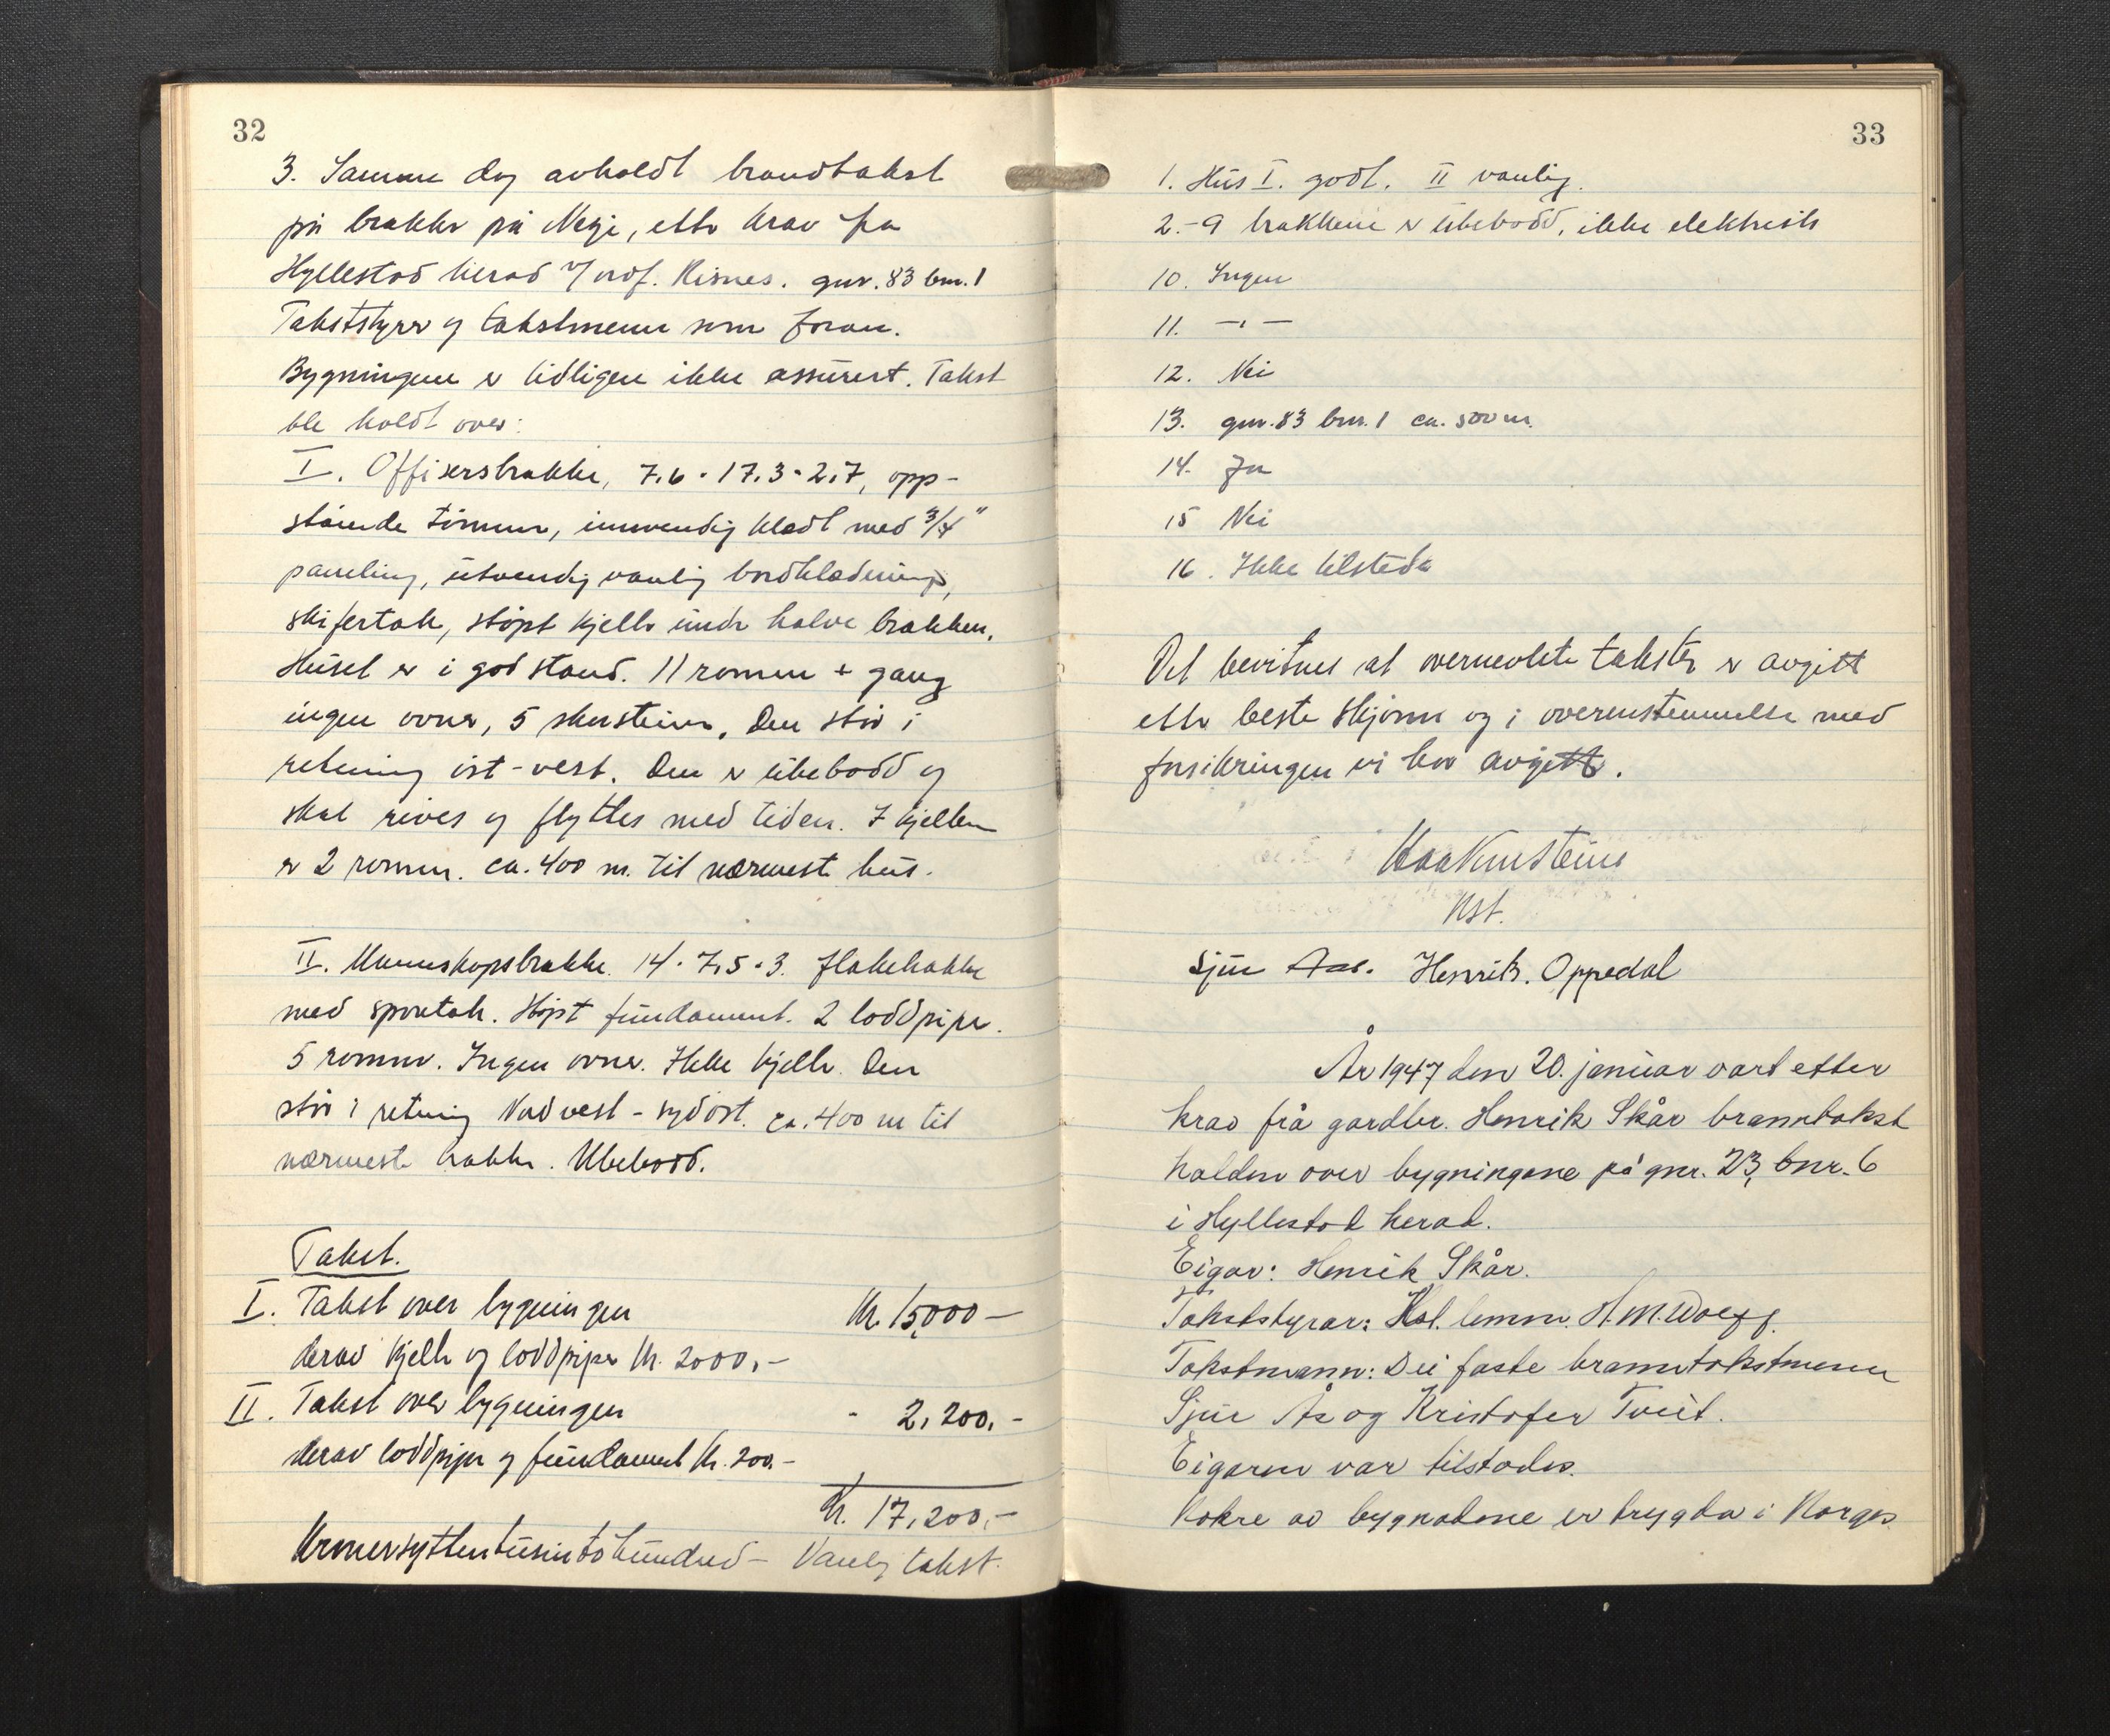 32
3. Samme dag avholdt brandtakst
på brakke på Nesje, etter krav fra
Hyllestad herad v/ordf. Risnes. gnr. 83 bnr. 1
Takststyrer og takstmenn som foran.
Bygningene er tidligere ikke assurert. Takst
ble holdt over:
I. Offisersbrakke, 7.6 · 17.3 · 2.7, opp-
stående tømmer, innvendig kledt med 3/4"
paneling, utvendig vanlig bordkledning,
skifertak, støpt kjeller under halve brakken.
Huset er i god stand. 11 rommer + gang
ingen ovner, 5 skorsteiner. Den står i
retning øst-vest. Den er ubebodd og
skal rives og flyttes med tiden. I kjelleren
er 2 rommer. ca. 400 m. til nærmeste hus.
II. Mannskapsbrakke. 14 · 7,5 · 3. flakebrakke
med spontak. Støpt fundament. 2 loddpiper.
5 rommer. Ingen ovner. Ikke kjeller. Den
står i retning Nordvest - sydøst. ca. 400 m til
nærmeste brakke. Ubebodd.
Takst.
I. Takst over bygningen Kr. 15,000 –
derav kjeller og loddpiper Kr. 2000,-
II. Takst over bygningen - 2,200,-
derav loddpiper og fundament Kr. 200.-
Kr. 17,200,-
Kronersyttentusintohundred – Vanlig takst.
33
1. Hus I. godt. II vanlig.
2.-9 brakkene er ubebodd, ikke elektrisk
10. Ingen
11. –"–
12. Nei
13. gnr. 83 bnr. 1 ca. 500 m.
14. Ja
15 Nei
16. Ikke tilstede
Det bevitnes at overnevnte takster er avgitt
etter beste skjønn og i overenstemmelse med
forsikringen vi har avgitt.
Kst.
Sjur Aas. Henrik. Oppedal
År 1947 den 20. januar vart etter
krav frå gardbr. Henrik Skår branntakst
halden over bygningane på gnr. 23, bnr. 6
i Hyllestad herad.
Eigar: Henrik Skår.
Takststyrar: Kst. lensm. H. M.
Takstmann: Dei faste branntakstmenn
Sjur Ås og Kristofer Tveit.
Eigaren var tilstades.
Nokre av bygnadene er trygda i Norges